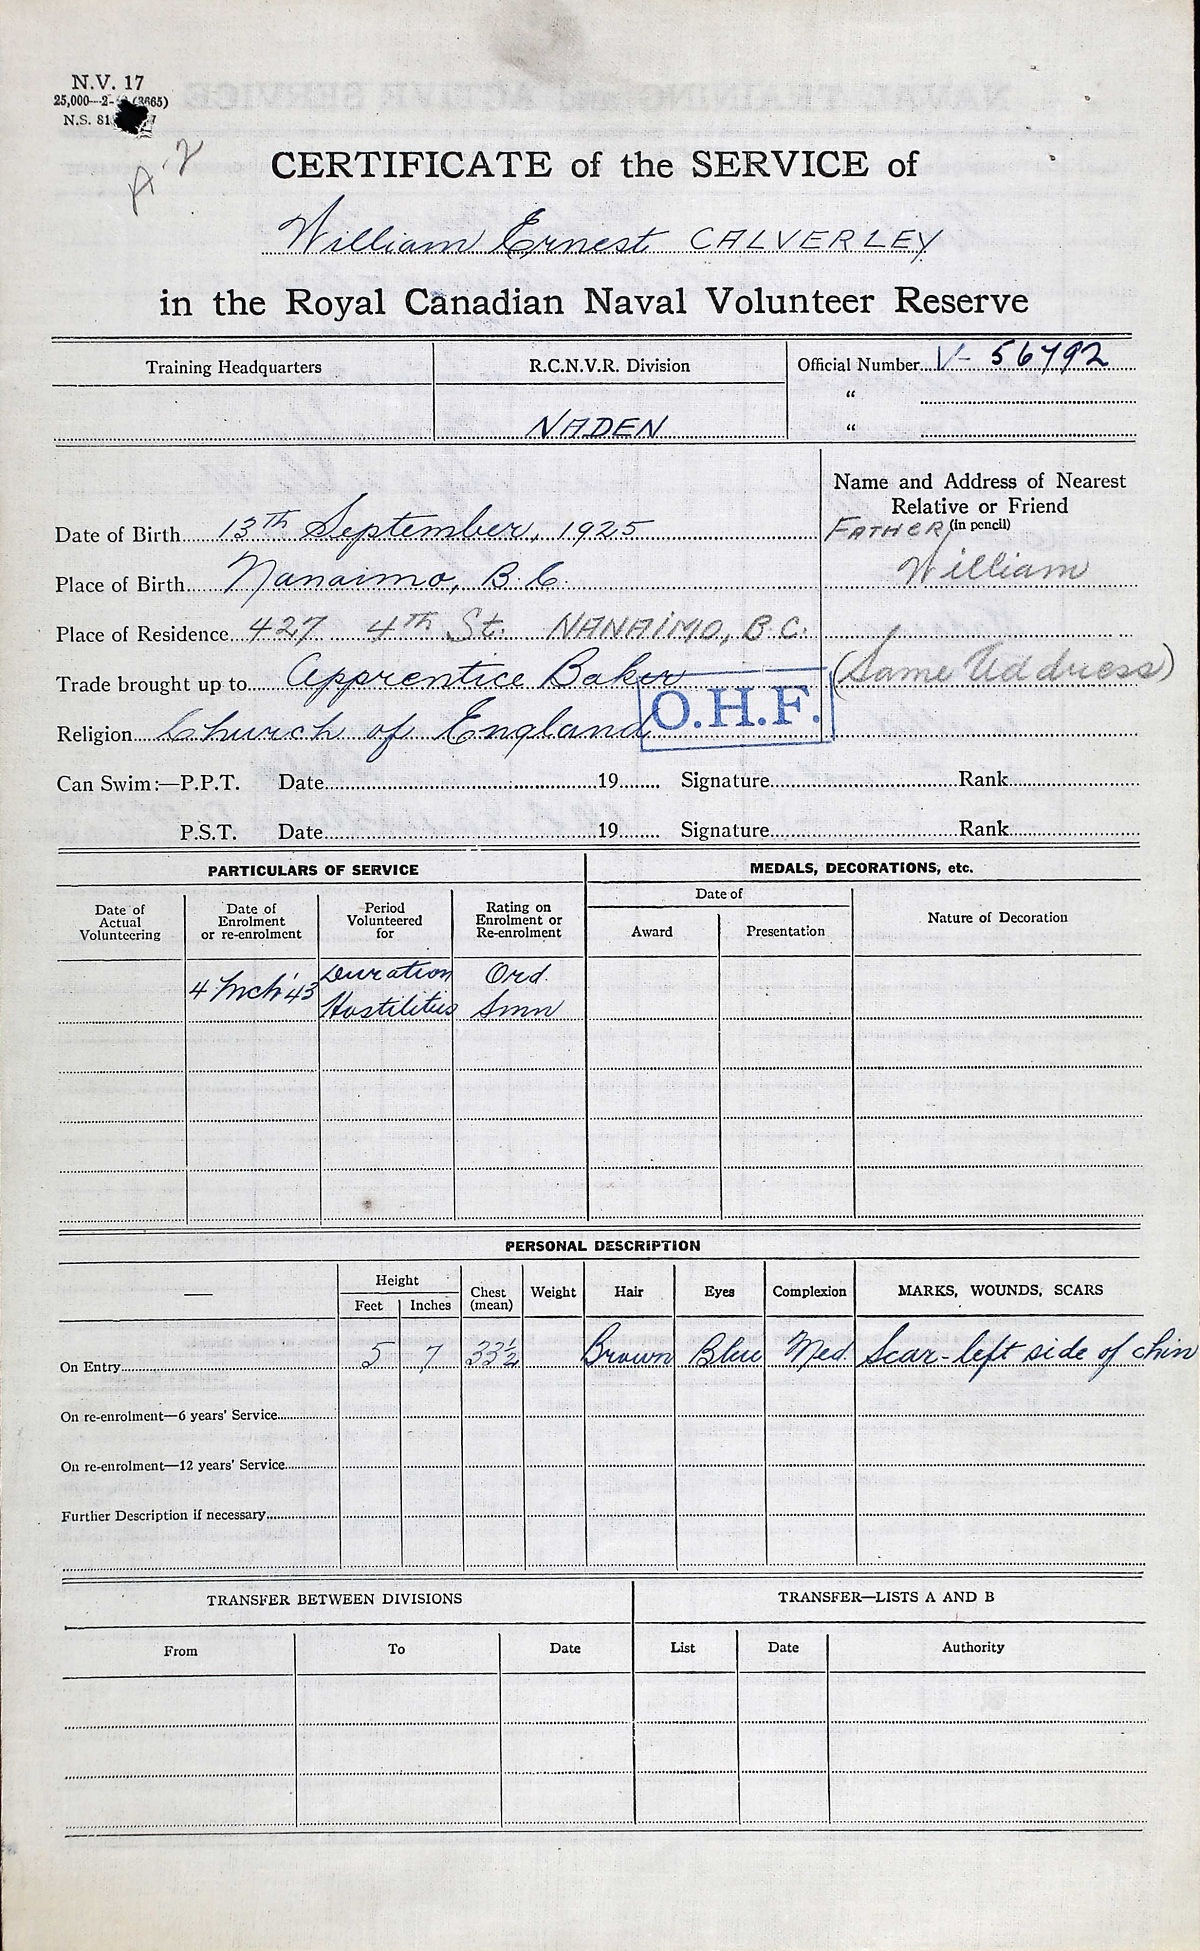 N.V. 17
25,000—2- (3665)
N.S. 81 7
A.2
CERTIFICATE of the SERVICE of
William Ernest CALVERLEY
in the Royal Canadian Naval Volunteer Reserve
Training Headquarters R.C.N.V.R. Division Official Number V- 56792
"
NADEN "
Name and Address of Nearest
Relative or Friend
(in pencil)
Date of Birth 13th September, 1925 FATHER
Place of Birth Nanaimo, B.C. William
Place of Residence 427 4th St. NANAIMO, B.C.
Trade brought up to Apprentice Baker (Same Address)
O.H.F.
Religion Church of England
Can Swim:—P.P.T. Date 19 Signature Rank
P.S.T. Date 19 Signature Rank
PARTICULARS OF SERVICE MEDALS, DECORATIONS, etc.
Date of Actual Volunteering Date of Enrolment or re-enrolment Period Volunteered for Rating on Enrolment or Re-enrolment Date of Nature of Decoration
Award Presentation
4 Mch '43 Duration Ord.
Hostilities Smn
PERSONAL DESCRIPTION
— Height Chest (mean) Weight Hair Eyes Complexion MARKS, WOUNDS, SCARS
Feet Inches
On Entry 5 7 33½ Brown Blue Med. Scar-left side of chin
On re-enrolment—6 years' Service
On re-enrolment—12 years' Service
Further Description if necessary
TRANSFER BETWEEN DIVISIONS TRANSFER—LISTS A AND B
From To Date List Date Authority